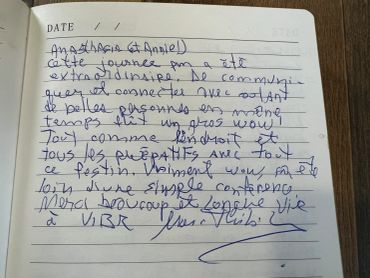 DATE / /
Anasthasia (et Annie)
Cette journée a été
extraordinaire. De communi-
quer et connecter avec autant
de belles personnes en même
temps était un gros wow!
Tout comme l'endroit et
tous les préparatifs avec tout
ce festin. Vraiment wow,
loin d'une simple conférence
Merci beaucoup et longue vie
à VIBR